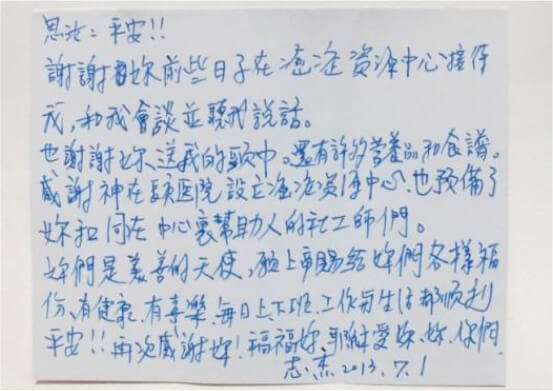 思汝：平安!!
謝謝妳前些日子在癌症資源中心接待
我，和我會談並聽我說話。
也謝謝妳送我的頭巾。還有許多營養品和食譜。
感謝神在長庚医院設立癌症資源中心，也預備了
妳和同在中心裏幫助人的社工師們。
妳們是美善的天使，願上帝賜給妳們各樣福
份、有健康、有喜樂、每日上、下班、工作與生活都順利
平安!! 再次感謝妳! 福福妳、耶穌愛妳、妳、你們。
志杰 2013.7.1